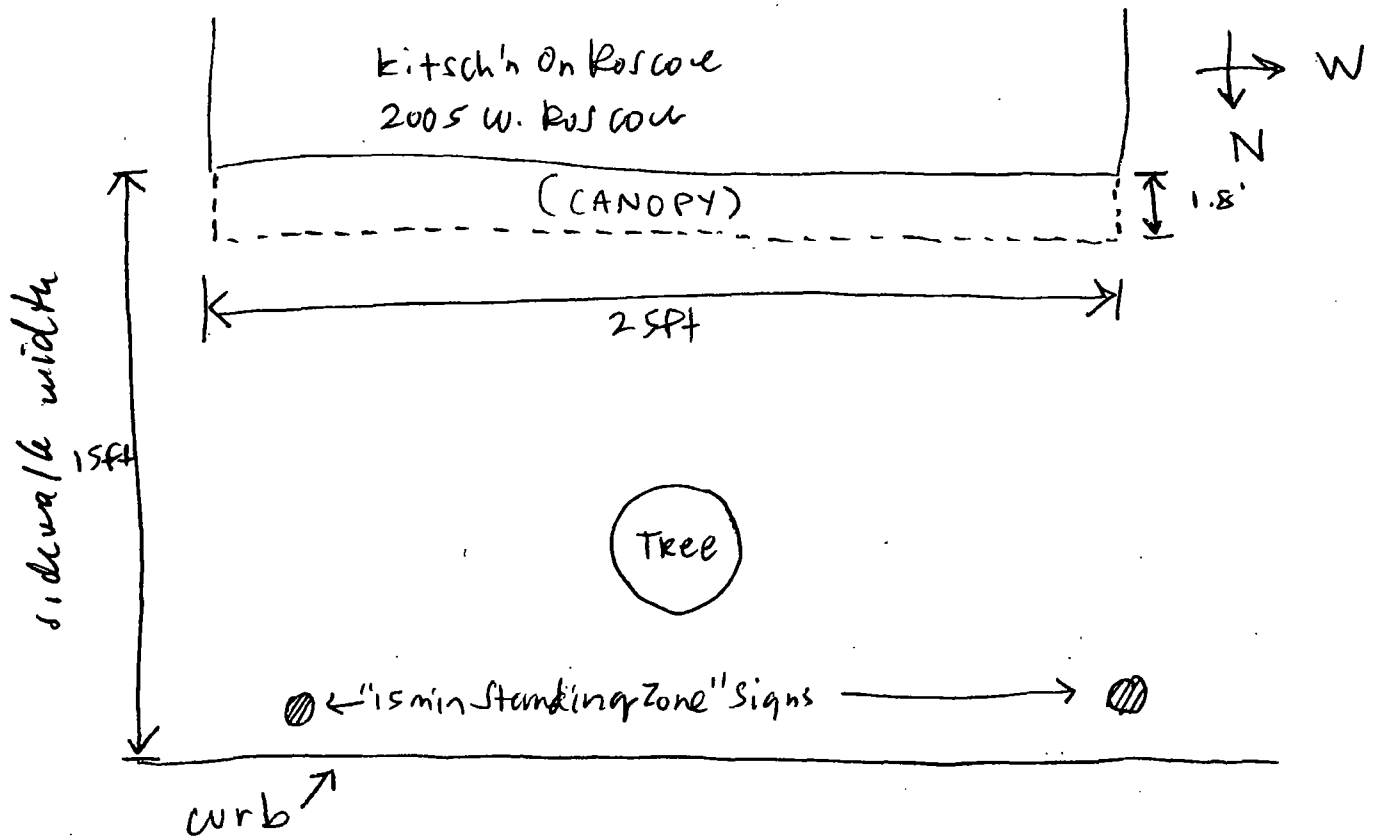 kitsch'n On Roscoe
2005 W. Roscoe
W
N
(CANOPY)
1.8'
25ft
sidewalk width
15ft
Tree
"15 min Standing Zone" Signs
curb